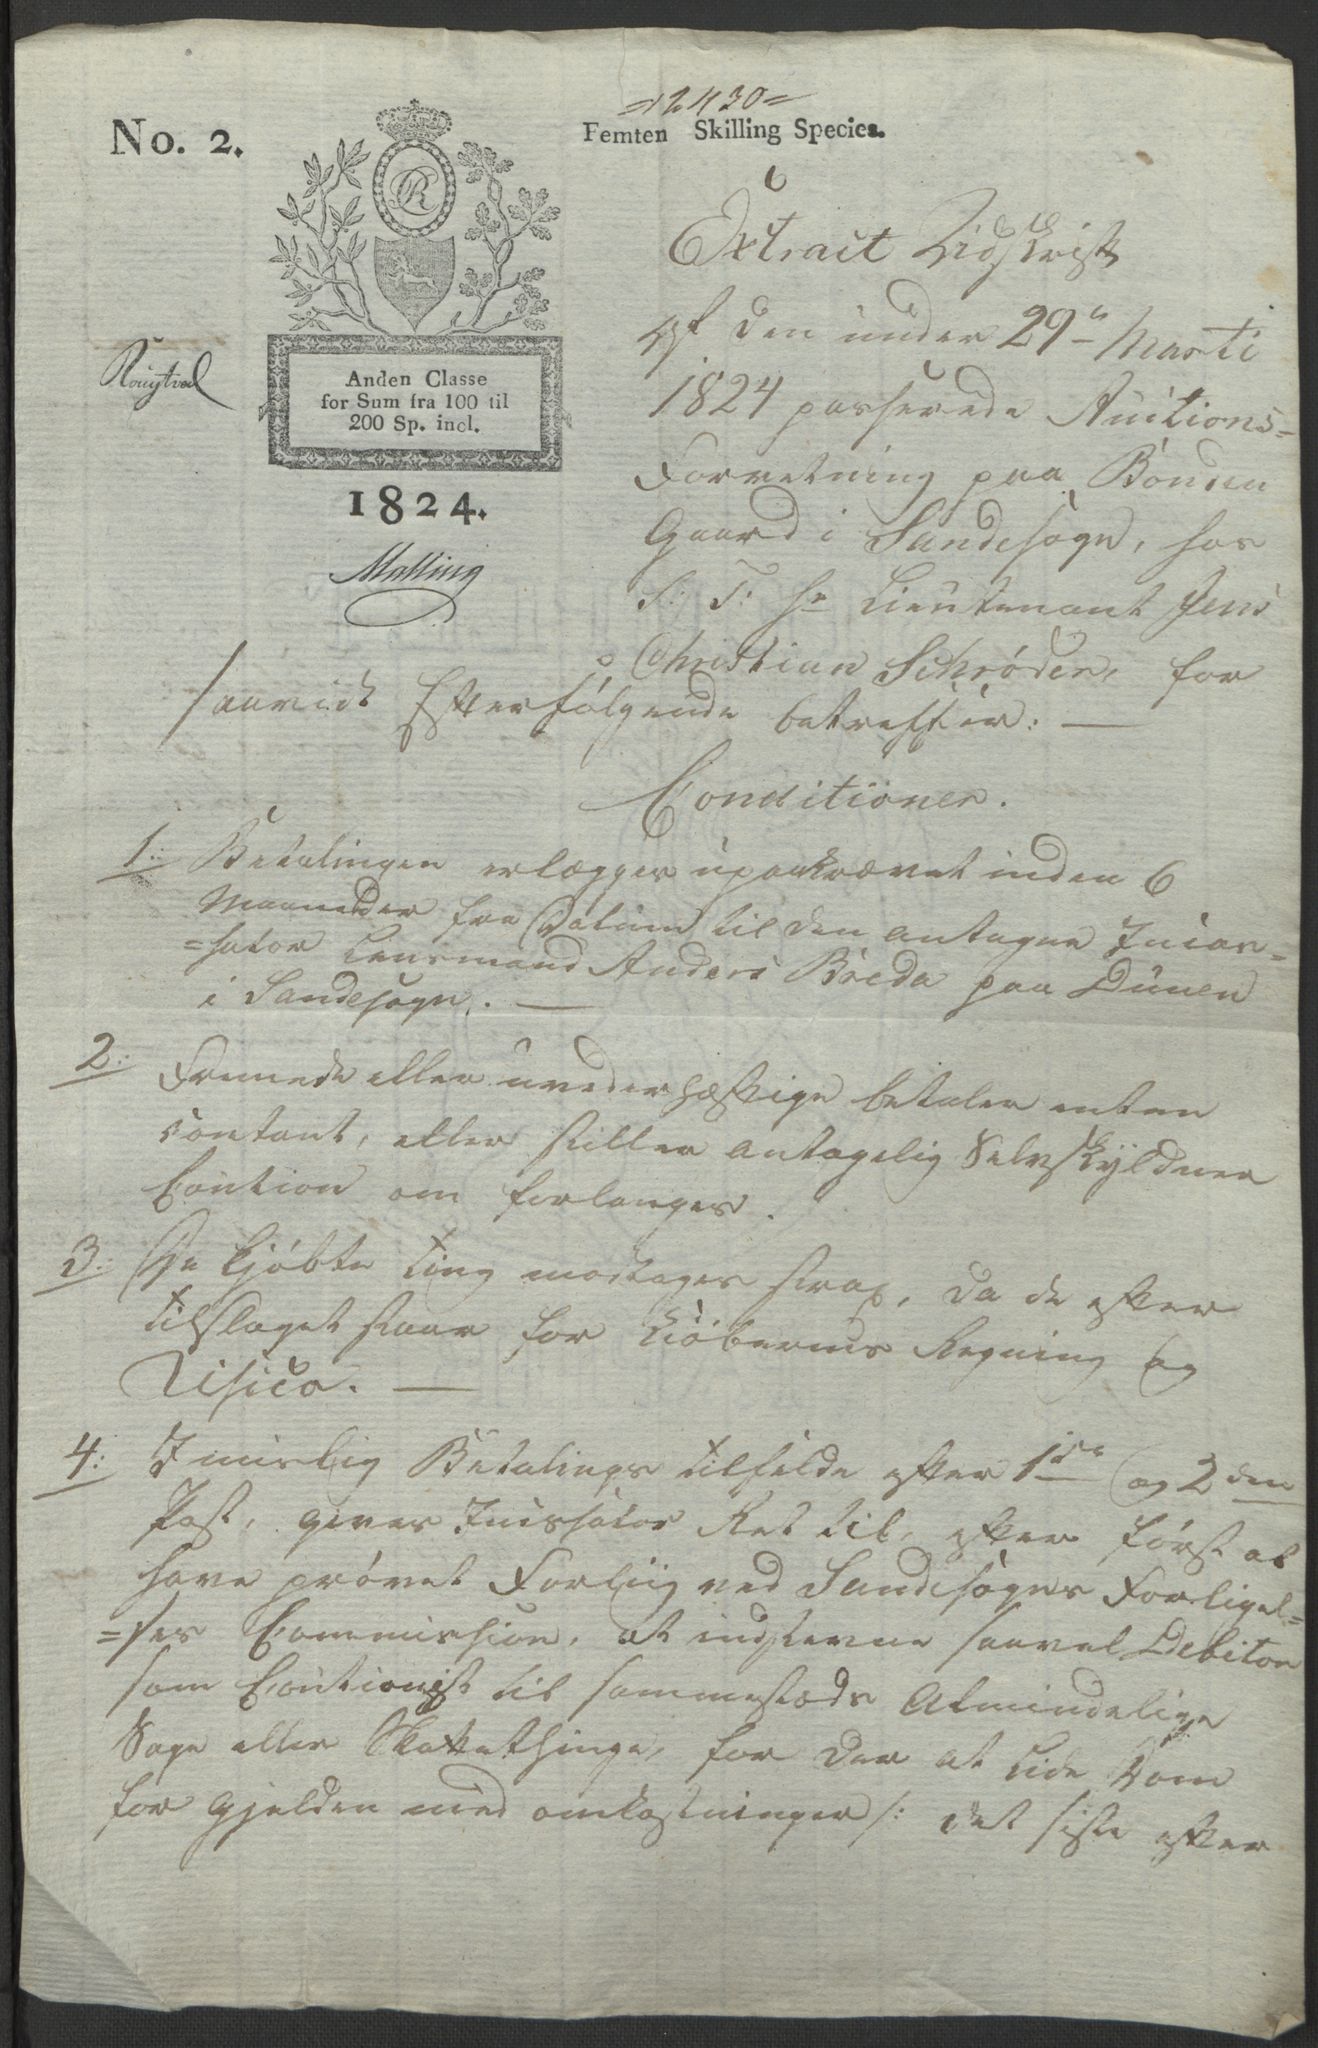 =12430=
No. 2.
Femten Skilling Species.
R
Anden Classe
for Sum fra 100 til
200 Sp. incl.
1824.
Malling
Extract Udskrift
af den under 29de Marti
1824 passerede Auctions=
Forretning paa Bonden
Gaard i Sandesogn, hos
S: T: Hr Lieutenant Jens
Christian Schrøder, for
saavidt Efterfølgende betreffer: —
Conditioner.
1: Betalingen erlægges upaakrævet inden 6
Maaneder fra Datum til den antagne Incas=
=sator Lensmand Anders Breda paa Duuen
i Sandesogn. —
2: Fremede eller uvederhæftige betaler enten
contant, eller stiller antagelig Selvskyldner
Caution om forlanges.
3: De kjøbte ting modtages strax, da de efter
tilslaget staar for Kiøberens Regning og
Risico. —
4: I mislig Betalings tilfelde efter 1ste og 2den
Post, gives Incassator Ret til, efter først at
have prøvet Forliig ved Sandesognes Forligel=
=ses Commission, at indstevne saavel Debitor
som Cautionist til sammesteds Almindelige
Sage eller Skattethinge, for der at lide Dom
for gjelden med omkostninger /: det siste efter